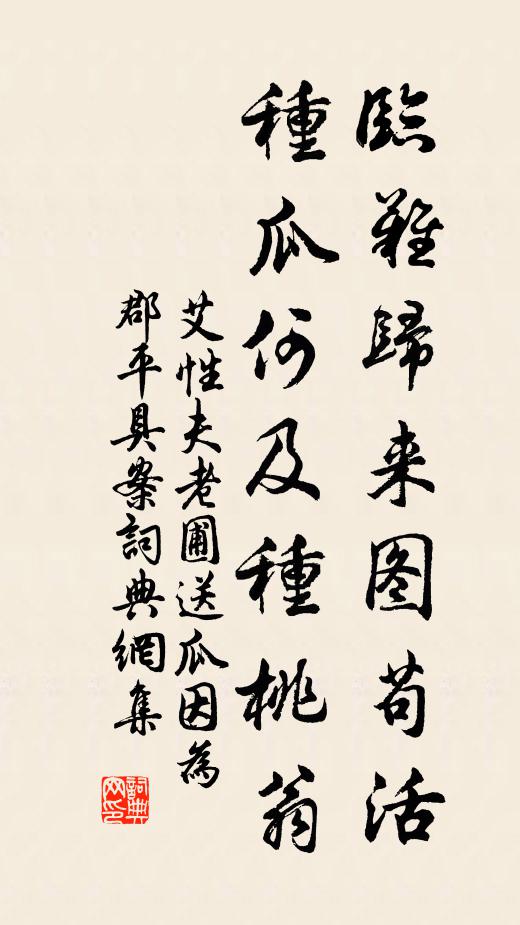 臨難歸来图苟活
種瓜何及種桃翁
艾性夫老圃送瓜因為
郡平具案詞典網集
詞典
网印